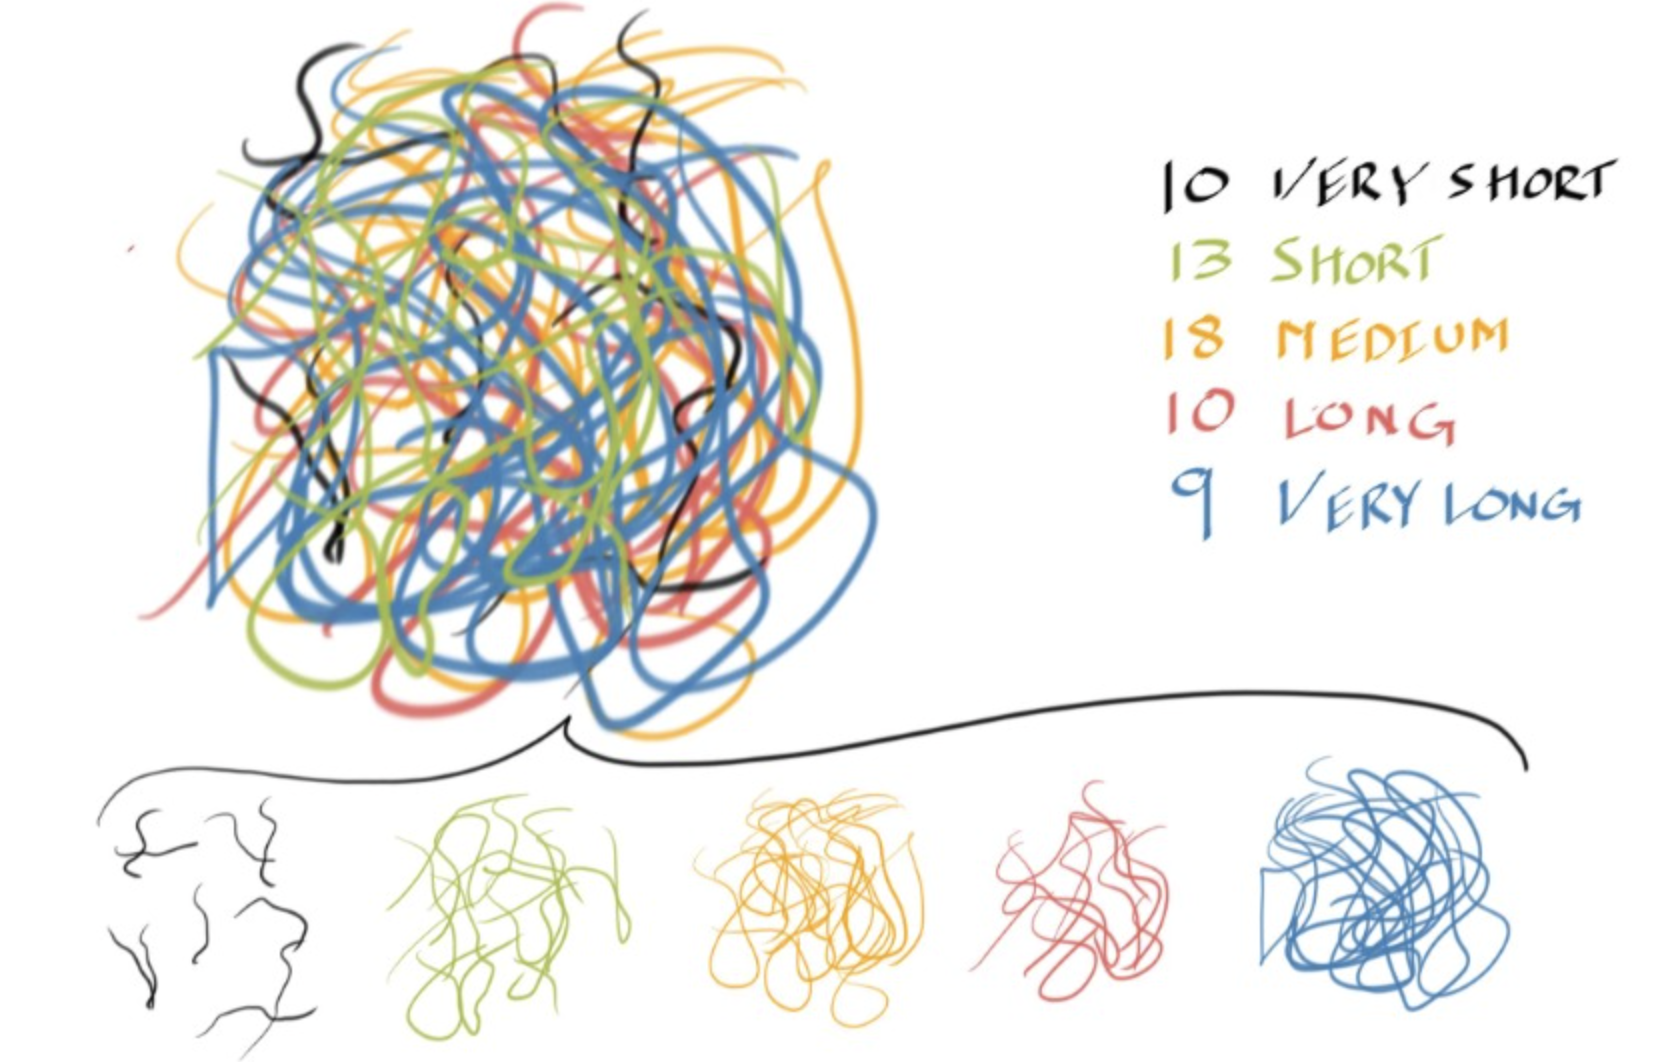 10 VERY SHORT
13 SHORT
18 MEDIUM
10 LONG
9 VERY LONG